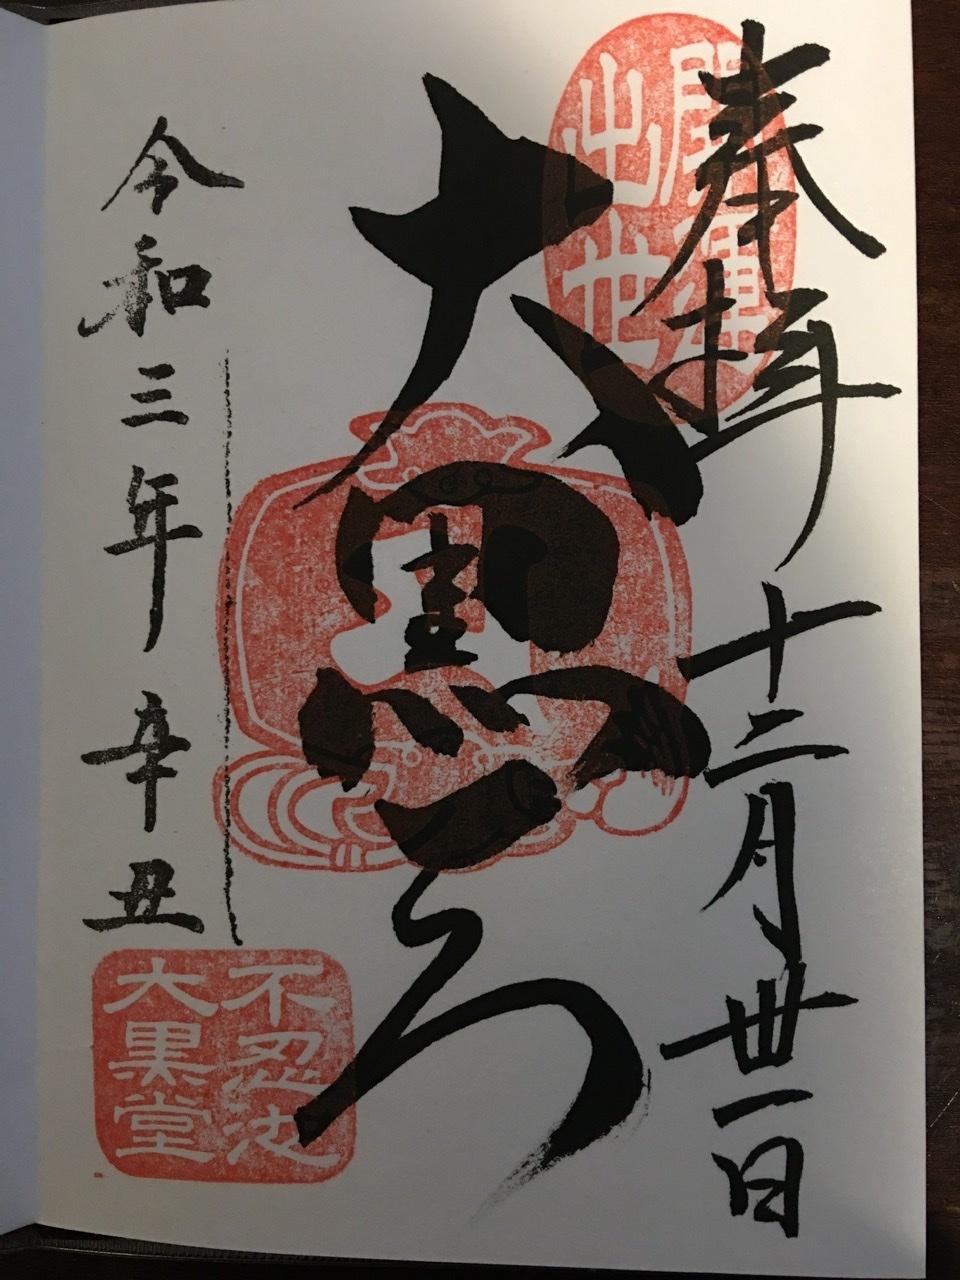 奉拝 十二月丗一日
開運
出世
大黒天
令和三年 辛丑
不忍池
大黒堂